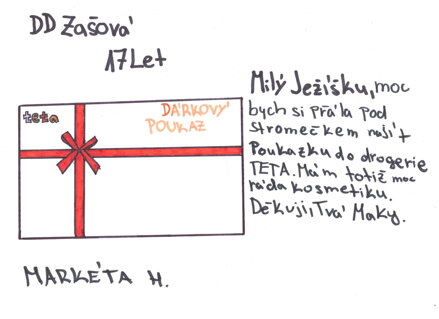 DD Zašová
17 Let
teta
DÁRKOVÝ
POUKAZ
Milý Ježíšku, moc
bych si přála pod
stromečkem najít
Poukazku do drogerie
TETA. Mám totiž moc
ráda kosmetiku.
Děkuji, Tvá Maky.
MARKÉTA H.